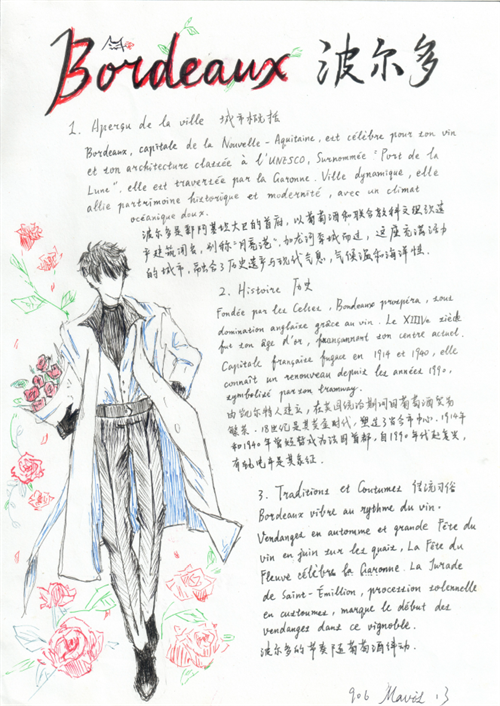 Bordeaux 波尔多
1. Aperçu de la ville 城市概括
Bordeaux, capitale de la Nouvelle-Aquitaine, est célèbre pour son vin
et son architecture classée à l'UNESCO, Surnommée "Port de la
Lune", elle est traversée par la Garonne. Ville dynamique, elle
allie partrimoine historique et modernité, avec un climat
océanique doux.
波尔多是新阿基坦大区的首府，以葡萄酒和联合教科文组织遗
产建筑闻名，别称"月亮港"。加龙河穿城而过，这座充满活力
的城市，融合了历史遗产与现代气息，气候温和海洋性。
2. Histoire 历史
Fondée par les Celtes, Bordeaux prospéra, sous
domination anglaise grâce au vin. Le XIIIVe siècle
fut son âge d'or, façonnement son centre actuel.
Capitale française fugace en 1914 et 1940, elle
connaît un renouveau depuis les années 1990,
symbolisé par son tramway.
由凯尔特人建立，在英国统治期间因葡萄酒贸易
繁荣。18世纪是其黄金时代，塑造了当今市中心。1914年
和1940年曾短暂成为法国首都，自1990年代起复兴，
有轨电车是其象征。
3. Traditions et Coutumes 传统习俗
Bordeaux vibre au rythme du vin.
Vendanges en automne et grande Fête du
vin en juin sur les quais, La Fête du
Fleuve célèbre la Garonne. La Jurade
de Saint-Emillion, procession solennelle
en custoumes, marque le début des
vendanges dans ce vignoble.
波尔多的节奏随葡萄酒律动.
906 Mavis 13